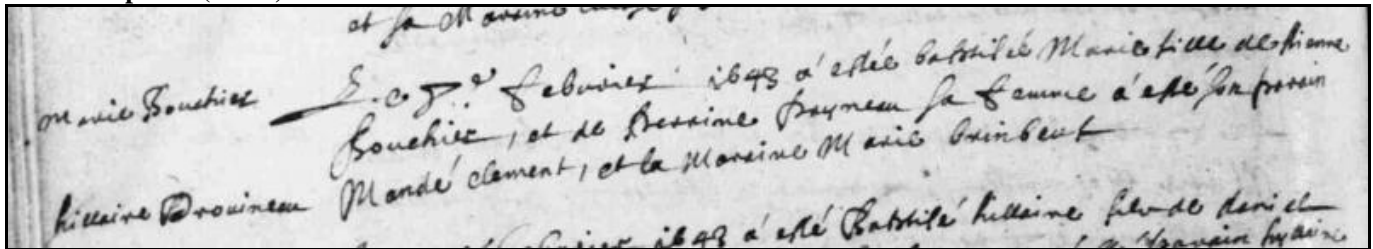 et sa Marraine
Marie Bouchier Le 7e Febvrier 1643 a estée baptisée Marie fille de Estienne
Bouchier, et de Perrine Prayneau sa femme a esté son parain
Mandé Clement, et la Marraine Marie Brinbeuf
hillaire Drouineau
1643 a esté Baptisé hillaire filz de daniel